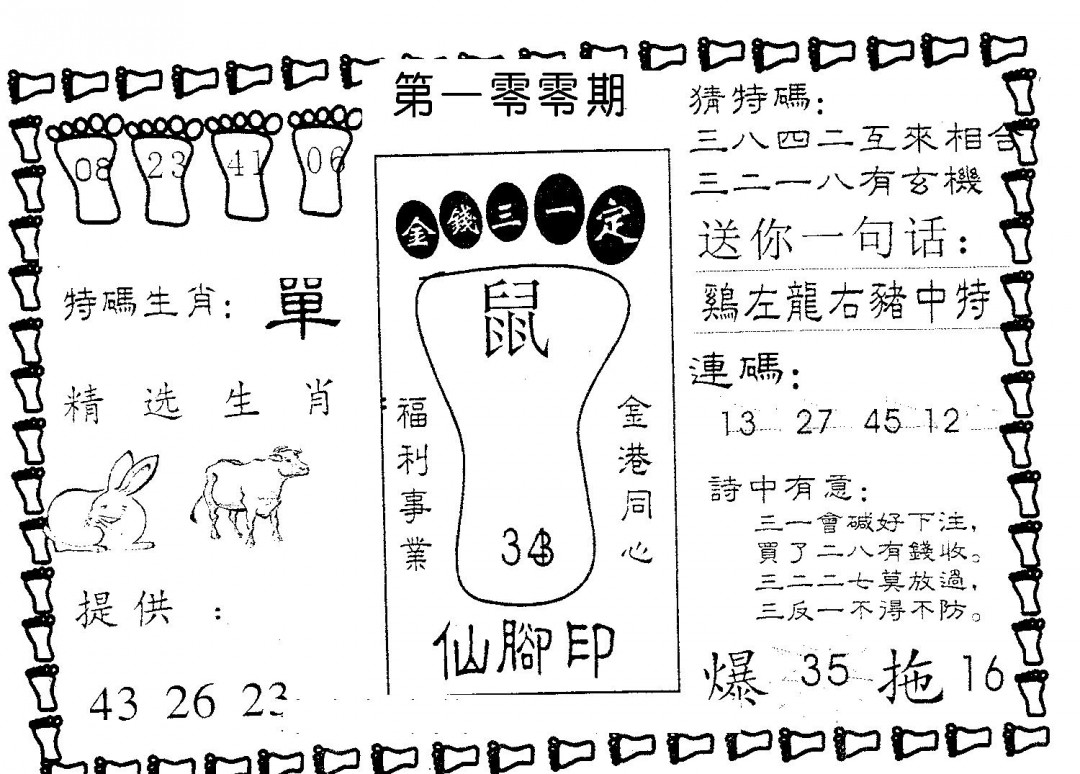 第一零零期
08 23 41 06
特碼生肖: 單
精选生肖
提供:
43 26 23
金錢三一定
鼠
福利事業
金港同心
仙腳印
猜特碼:
三八四二互來相合
三二一八有玄機
送你一句话:
鷄左龍右豬中特
連碼:
13 27 45 12
詩中有意:
三一會碱好下注,
買了二八有錢收。
三二二七莫放過,
三反一不得不防。
爆 35 拖 16